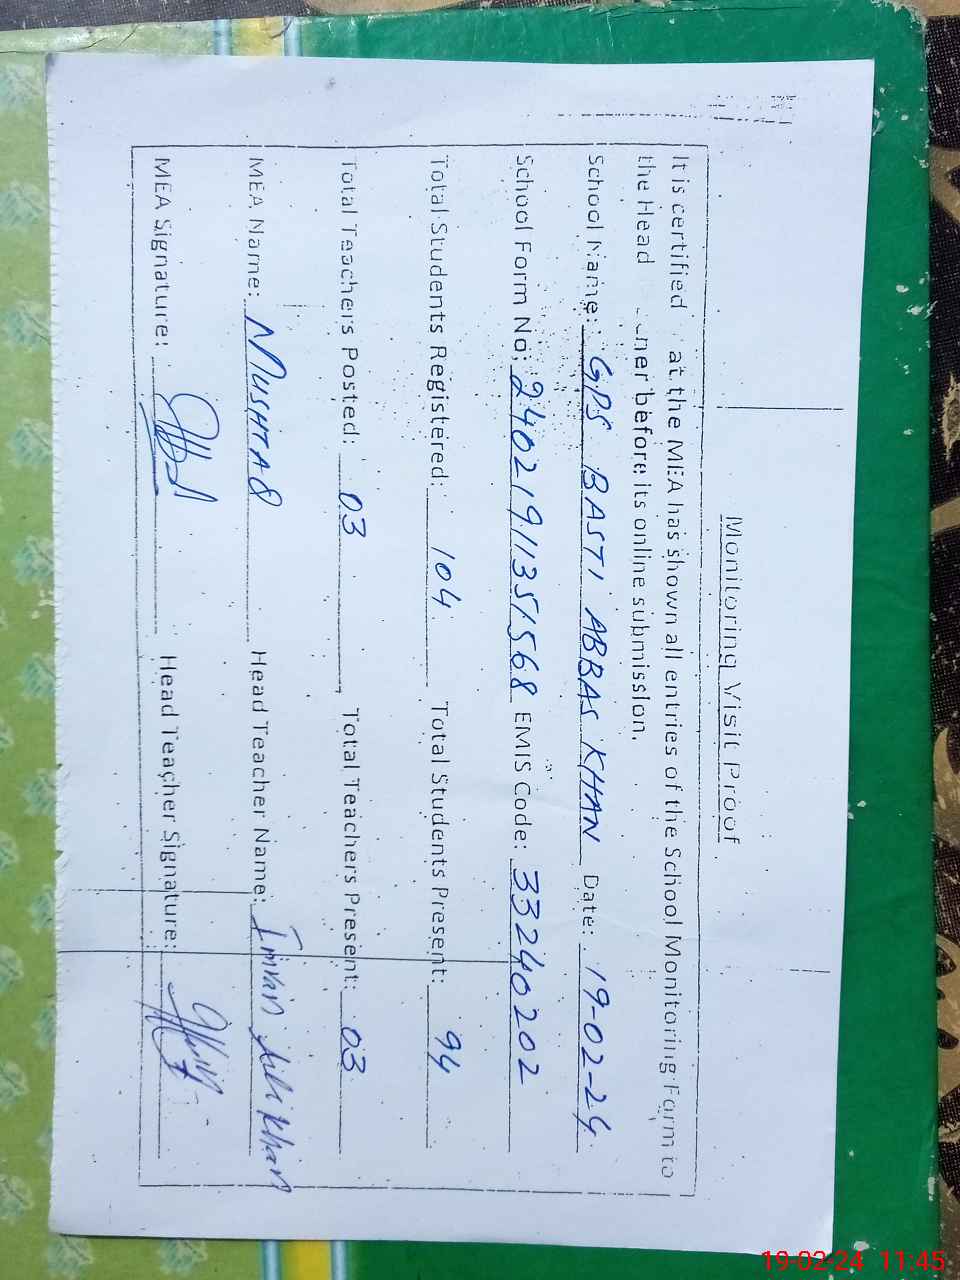 Monitoring Visit Proof
It is certified at the MEA has shown all entries of the School Monitoring Form to
the Head ner before its online submission.
School Name: GPS BASTI ABBAS KHAN Date: 19-02-24
School Form No: 24021911351568 EMIS Code: 33240202
Total Students Registered: 104 Total Students Present: 94
Total Teachers Posted: 03 Total Teachers Present: 03
MEA Name: MUSHTAQ Head Teacher Name: Imran Khan
MEA Signature: Head Teacher Signature:
19-02-24 11:45